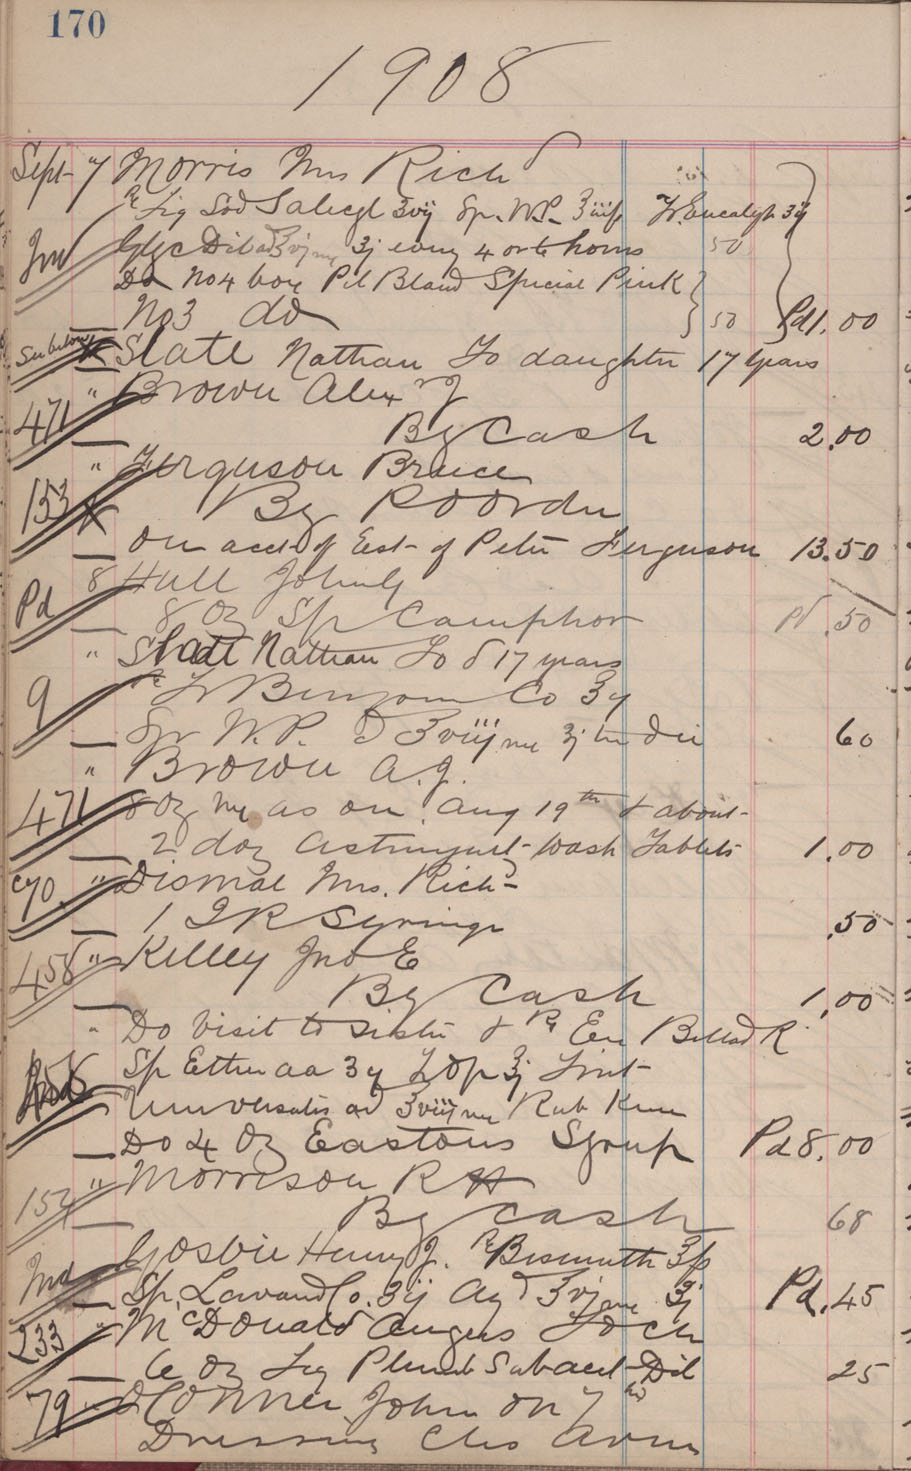 170
1908
Sept 7 Morris Mrs Rich d
℞ Liq Sod Salicyl ʒvij Sp. W.P. ʒiiij Tr. Eucalypti ʒij
Ind Glyc Dil ad ʒvj ʒj every 4 or 6 hours 50
Do No 4 box Pil Bland Special Pink
No 3 do 50 Pd 1.00
See below X Slate Nathan To daughter 17 years
471 " Brown Alexr J
By Cash 2.00
" Ferguson Bruce
153 X By P O Order
on acct of Est of Peter Ferguson 13.50
Pd 8 Hull John G
8 Oz Sp Camphor Pd .50
" Slate Nathan To d 17 years
9 ℞ Tr Benzoin Co ʒij
Sp W.P. ad ʒviij ʒj ter die 60
" Brown A. J.
471 8 Oz as on Aug 19th & about
2 doz astringent wash Tablets 1.00
70 " Dismal Mrs. Rich d
1 I R Syringe .50
458 " Kelley Jno E
By Cash 1.00
" Do Visit to Sister & ℞ Ext Bellad R
Sp Ether aa ʒij Lint
Universalis ad ʒviij Rub Knee
Do 4 Oz Eastons Syrup Pd 8.00
" Morrison R H
152 By Cash 68
Gosbie Henry J. ℞ Bismuth
Ind Sp. Lavand Co. ʒij Aq ad ʒvj ʒj Pd .45
233 " McDonald Angus To ch
6 Oz Liq Plumb Subacet Dil 25
79 " O'Conner John on 7th
Dressing Chs Arm